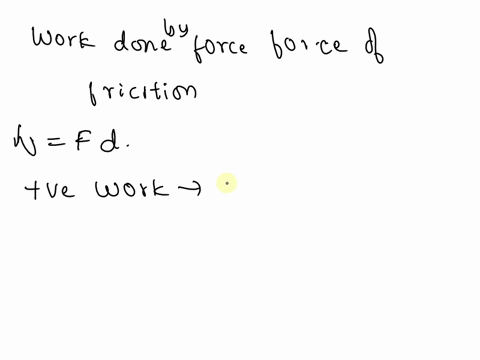 Work done by force force of
fricition
W = F d.
+ve work →